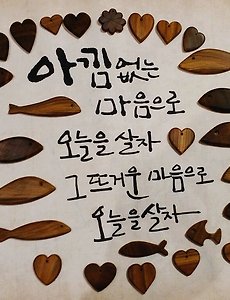 아낌없는
마음으로
오늘을 살자
그 뜨거운 마음으로
오늘을 살자